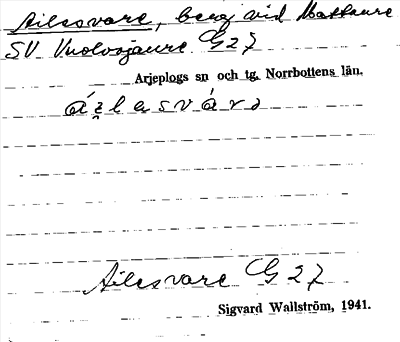 Ailesvare, berg vid Mattaure
SV Vuolvojaure G27
Arjeplogs sn och tg. Norrbottens län.
Ailesvare G27
Sigvard Wallström, 1941.